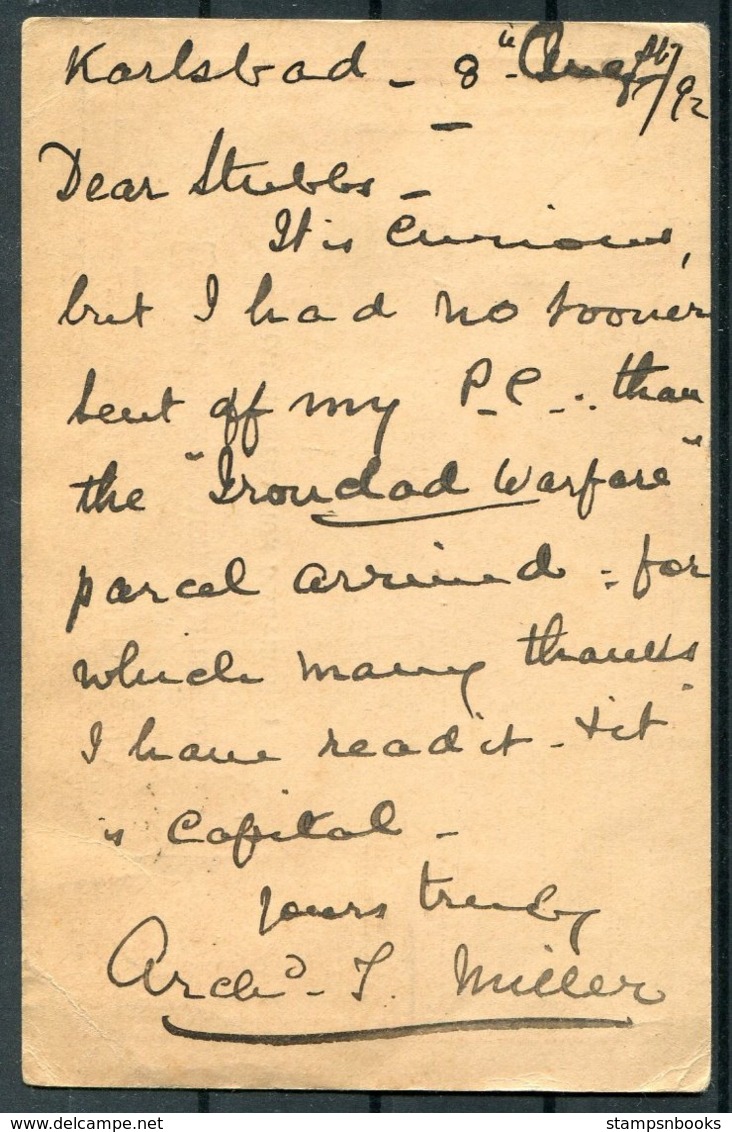 Karlsbad - 8th Augst/92
Dear Stubbs -
It is Curious,
but I had no sooner
sent off my P.C. than
the "Ironclad Warfare"
parcel arrived - for
which many thanks
I have read it - & it
is Capital -
yours truly
Archd. T. Miller
www.delcampe.net
stampsnbooks